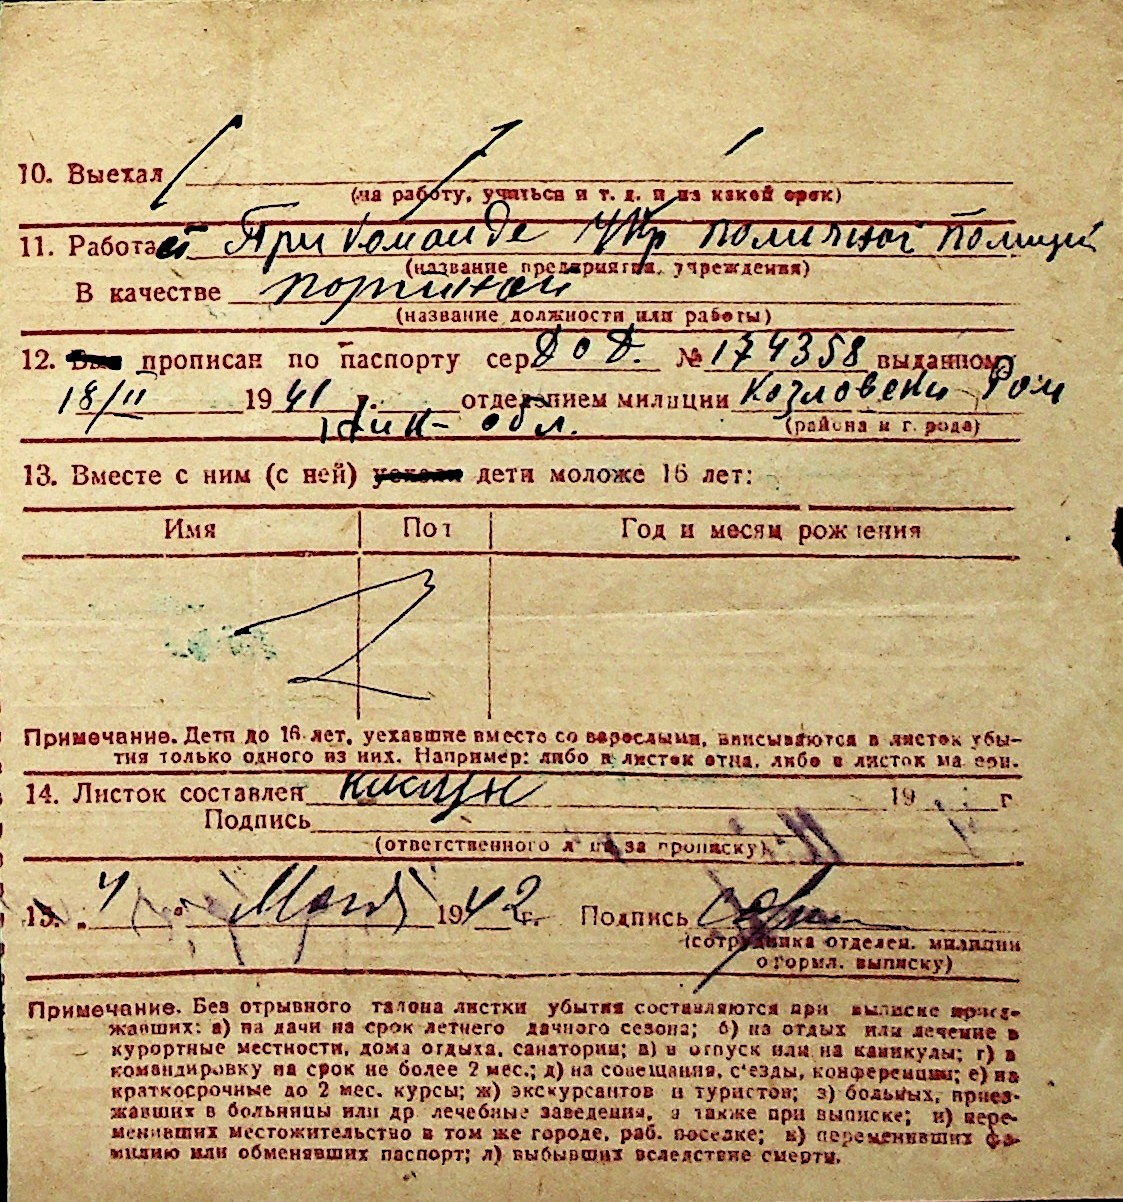 10. Выехал
(на работу, учиться и т. д. и на какой срок)
11. Работает При команде Укр поличной полиций
(название предприятия, учреждения)
В качестве портиной
(название должности или работы)
12. прописан по паспорту сер. ДОД. № 174358 выданному
18/II 1941 г. отделением милиции Козловским Ром
обл.
(района и города)
13. Вместе с ним (с ней) дети моложе 16 лет:
Имя Пол Год и месяц рождения
Примечание. Дети до 16 лет, уехавшие вместо со взрослыми, вписываются в листок убы-
тия только одного из них. Например: либо в листок отца, либо в листок матери.
14. Листок составлен 19 г
Подпись
(ответственного лица за прописку)
15. „4" Март 1942 г. Подпись
(сотрудника отделен. милиции
оформл. выписку)
Примечание. Без отрывного талона листки убытия составляются при выписке приез-
жавших: а) на дачи на срок летнего дачного сезона; б) на отдых или лечение в
курортные местности, дома отдыха, санатории; в) в отпуск или на каникулы; г) в
командировку на срок не более 2 мес.; д) на совещания, с'езды, конференции; е) на
краткосрочные до 2 мес. курсы; ж) экскурсантов и туристов; з) больных, приез-
жавших в больницы или др лечебные заведения, а также при выписке; и) пере-
менивших местожительство в том же городе, раб. поселке; к) переменивших фа-
милию или обменявших паспорт; л) выбывших вследствие смерти.